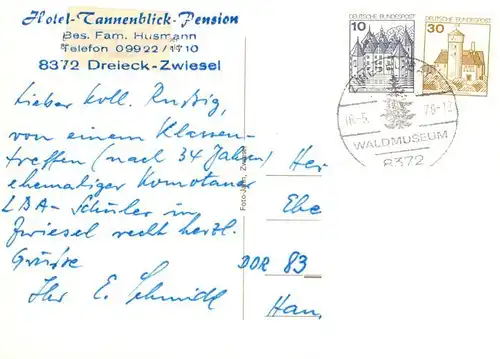 Hotel-Tannenblick-Pension
Bes. Fam. Husmann
Telefon 09922/1710
8372 Dreieck-Zwiesel
Lieber Koll. Rußig,
von einem Klassen-
treffen (nach 34 Jahren)
ehemaliger Komotauer
LBA-Schüler in
Zwiesel recht herzl.
Grüsse
Ihr E. Schmidl
Foto-Jahn, Zwiesel
10 DEUTSCHE BUNDESPOST
30 DEUTSCHE BUNDESPOST
ZWIESEL
78-12
WALDMUSEUM
8372
Her
Ebe
DDR 83
Han